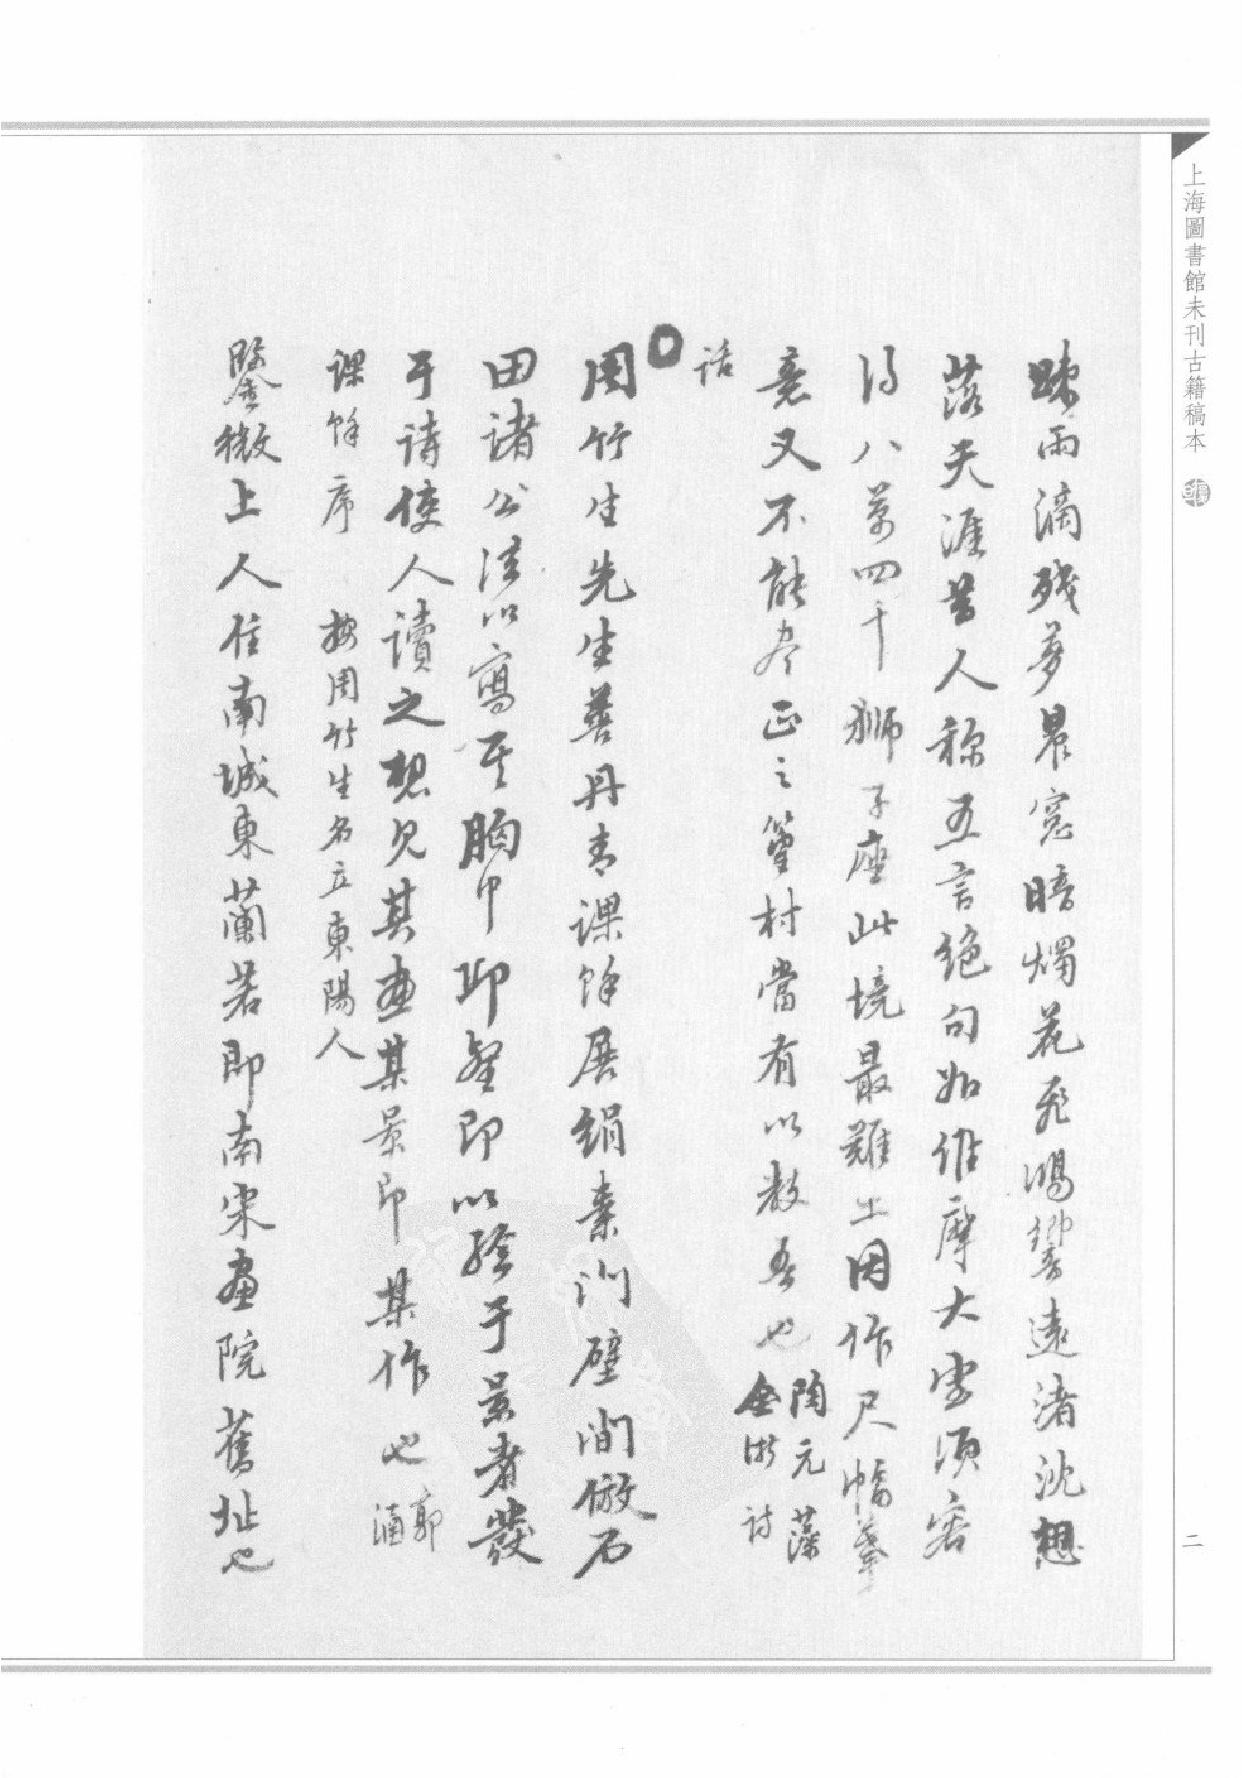 上海圖書館未刊古籍稿本
二
疎雨滴殘夢晨窓暗燭花飛鴻響遠渚沈想
落天涯昔人稱五言絕句如維摩大室須容
得八萬四千獅子座此境最難工因作尺幅
意又不能尽正之篁村當有以教吾也 陶元藻
全浙詩
話
周竹生先生善丹青課餘展絹素門壁間倣石
田諸公法以寫其胸中邱壑即以發
于詩使人讀之想見其畫某景即某作也 郭
課餘序 按周竹生名立東陽人
鑒微上人住南城東蘭若即南宋畫院舊址也